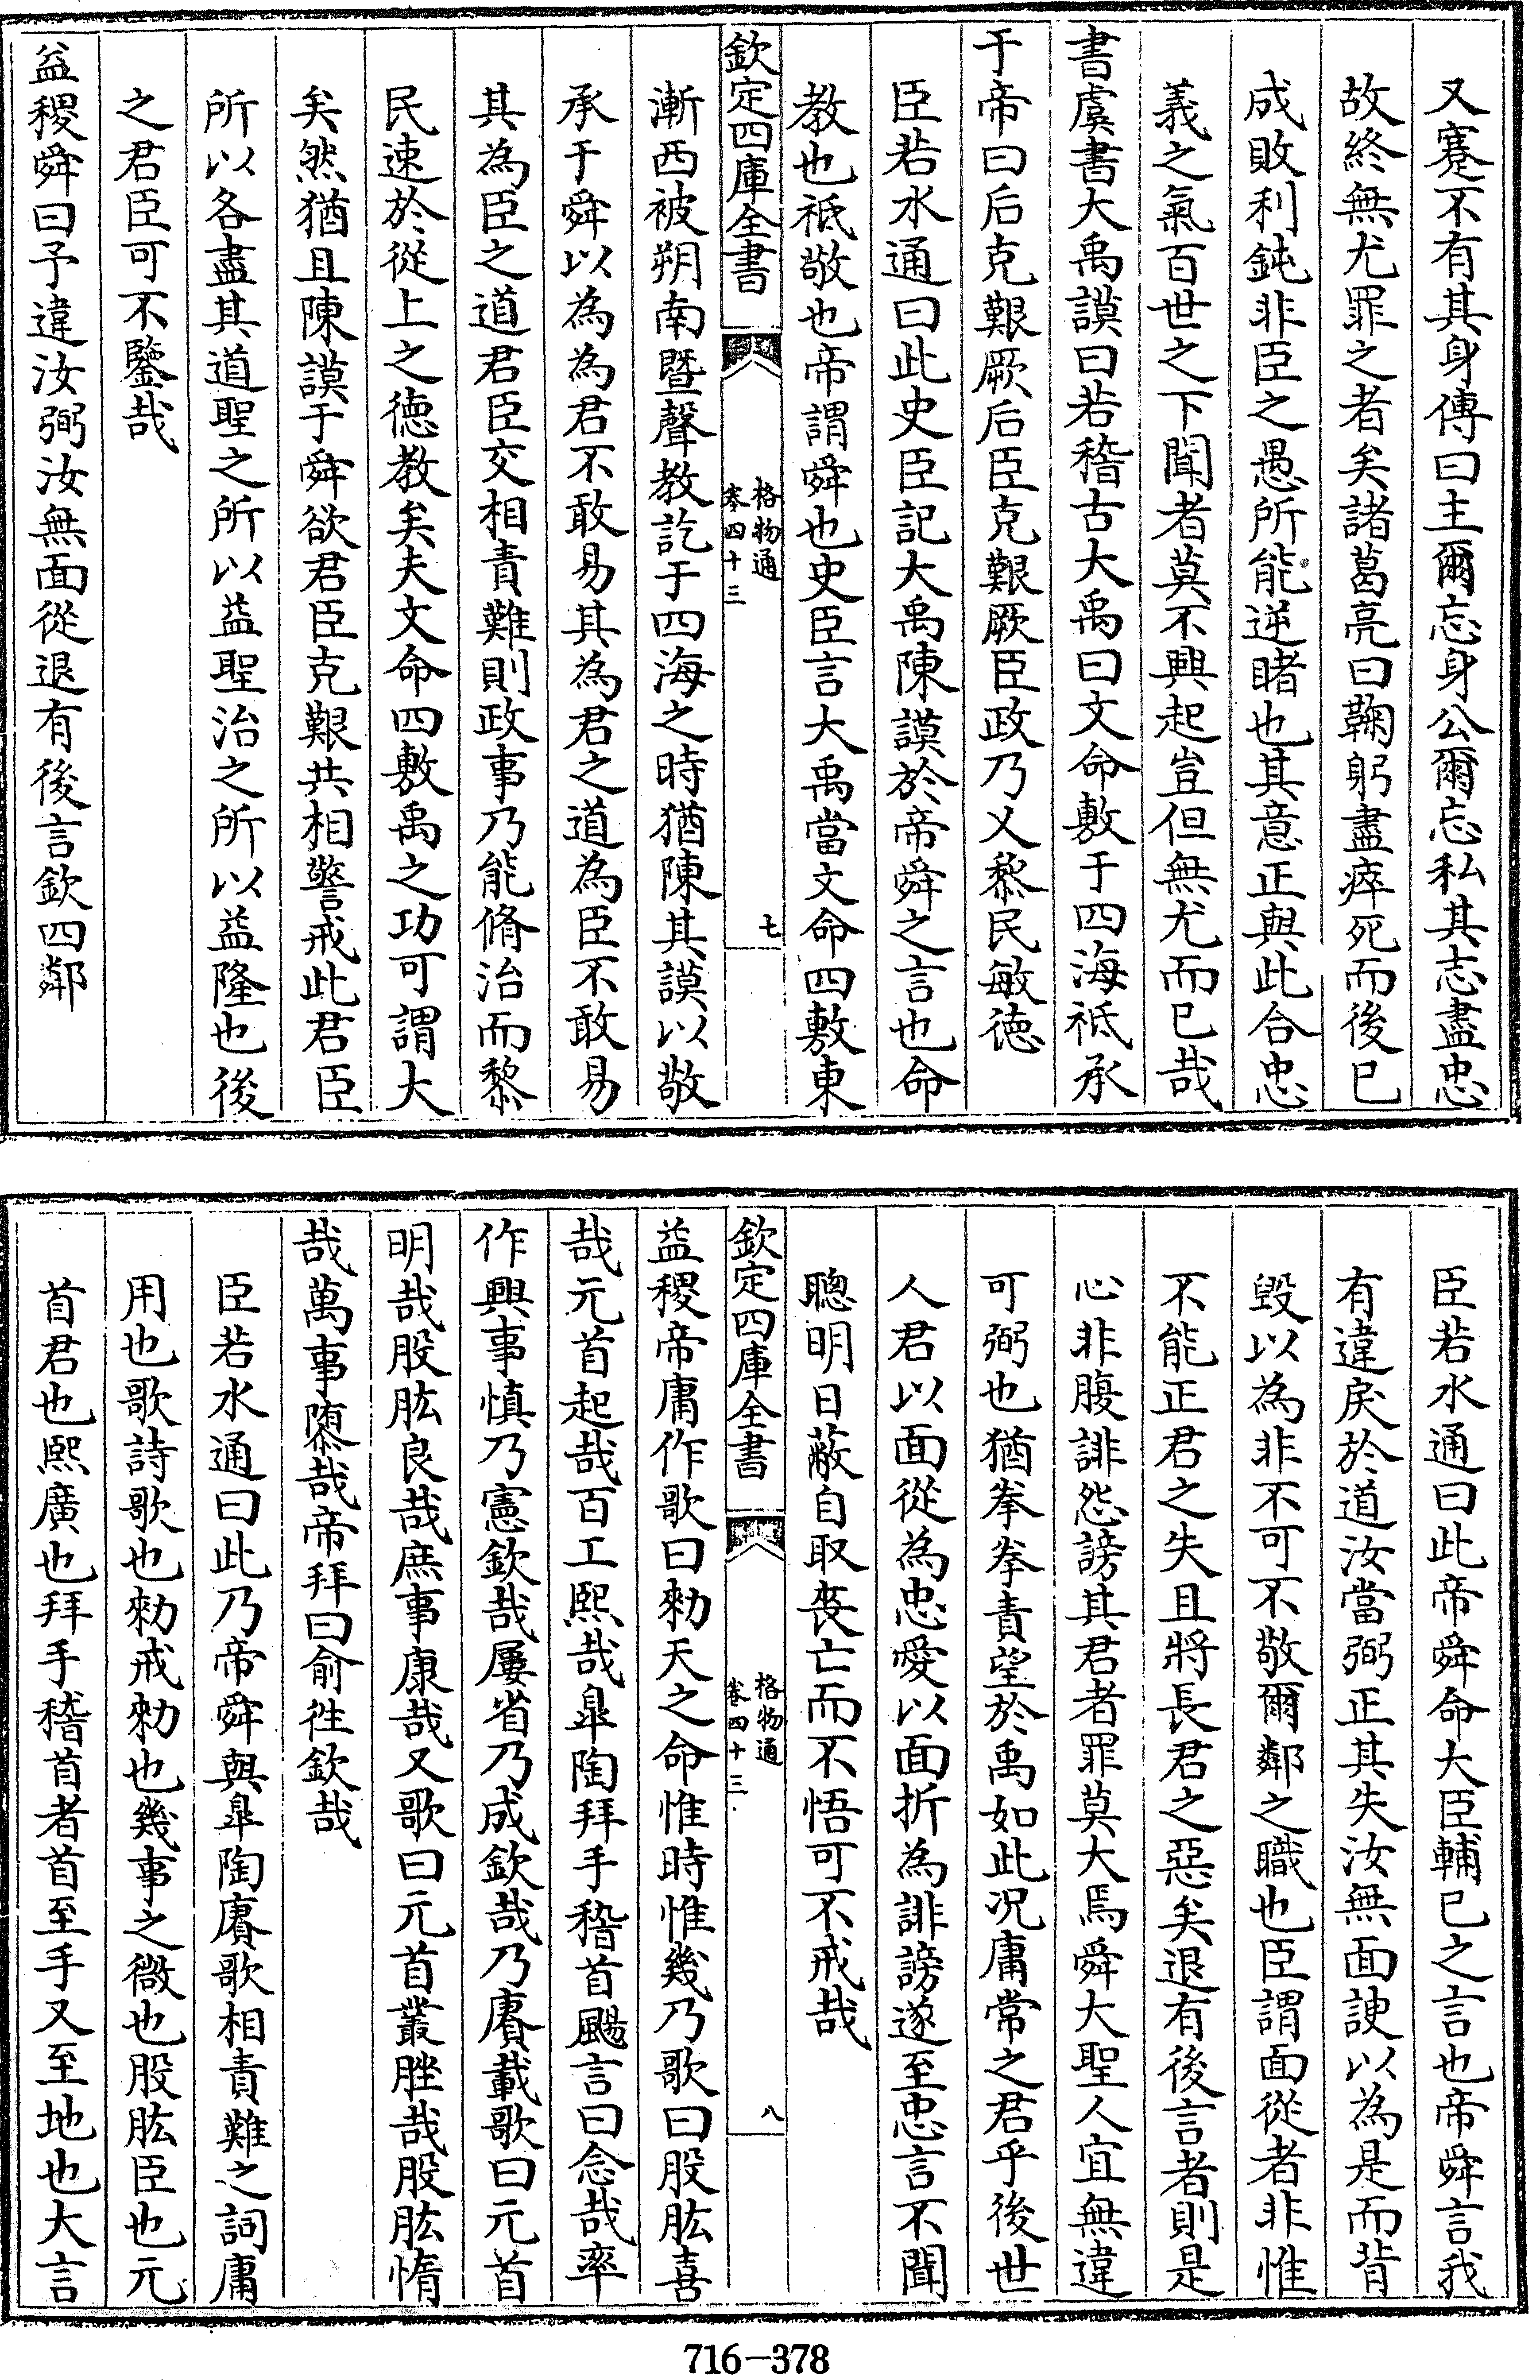 又蹇不有其身傳曰主爾忘身公爾忘私其志盡忠
故終無尤罪之者矣諸葛亮曰鞠躬盡瘁死而後已
成敗利鈍非臣之愚所能逆睹也其意正與此合忠
義之氣百世之下聞者莫不興起豈但無尤而已哉
書虞書大禹謨曰若稽古大禹曰文命敷于四海祗承
于帝曰后克艱厥后臣克艱厥臣政乃乂黎民敏德
臣若水通曰此史臣記大禹陳謨於帝舜之言也命
教也祗敬也帝謂舜也史臣言大禹當文命四敷東
欽定四庫全書
格物通
卷四十三
七
漸西被朔南暨聲教訖于四海之時猶陳其謨以敬
承于舜以為為君不敢易其為君之道為臣不敢易
其為臣之道君臣交相責難則政事乃能脩治而黎
民速於從上之德教矣夫文命四敷禹之功可謂大
矣然猶且陳謨于舜欲君臣克艱共相警戒此君臣
所以各盡其道聖之所以益聖治之所以益隆也後
之君臣可不鑒哉
益稷舜曰予違汝弼汝無面從退有後言欽四鄰
臣若水通曰此帝舜命大臣輔已之言也帝舜言我
有違戾於道汝當弼正其失汝無面諛以為是而背
毀以為非不可不敬爾鄰之職也臣謂面從者非惟
不能正君之失且將長君之惡矣退有後言者則是
心非腹誹怨謗其君者罪莫大焉舜大聖人宜無違
可弼也猶拳拳責望於禹如此况庸常之君乎後世
人君以面從為忠愛以面折為誹謗遂至忠言不聞
聰明日蔽自取喪亡而不悟可不戒哉
欽定四庫全書
格物通
卷四十三
八
益稷帝庸作歌曰勑天之命惟時惟幾乃歌曰股肱喜
哉元首起哉百工熙哉臯陶拜手稽首颺言曰念哉率
作興事慎乃憲欽哉屢省乃成欽哉乃賡載歌曰元首
明哉股肱良哉庶事康哉又歌曰元首叢脞哉股肱惰
哉萬事隳哉帝拜曰俞往欽哉
臣若水通曰此乃帝舜與臯陶賡歌相責難之詞庸
用也歌詩歌也勑戒勑也幾事之微也股肱臣也元
首君也熙廣也拜手稽首者首至手又至地也大言
716-378